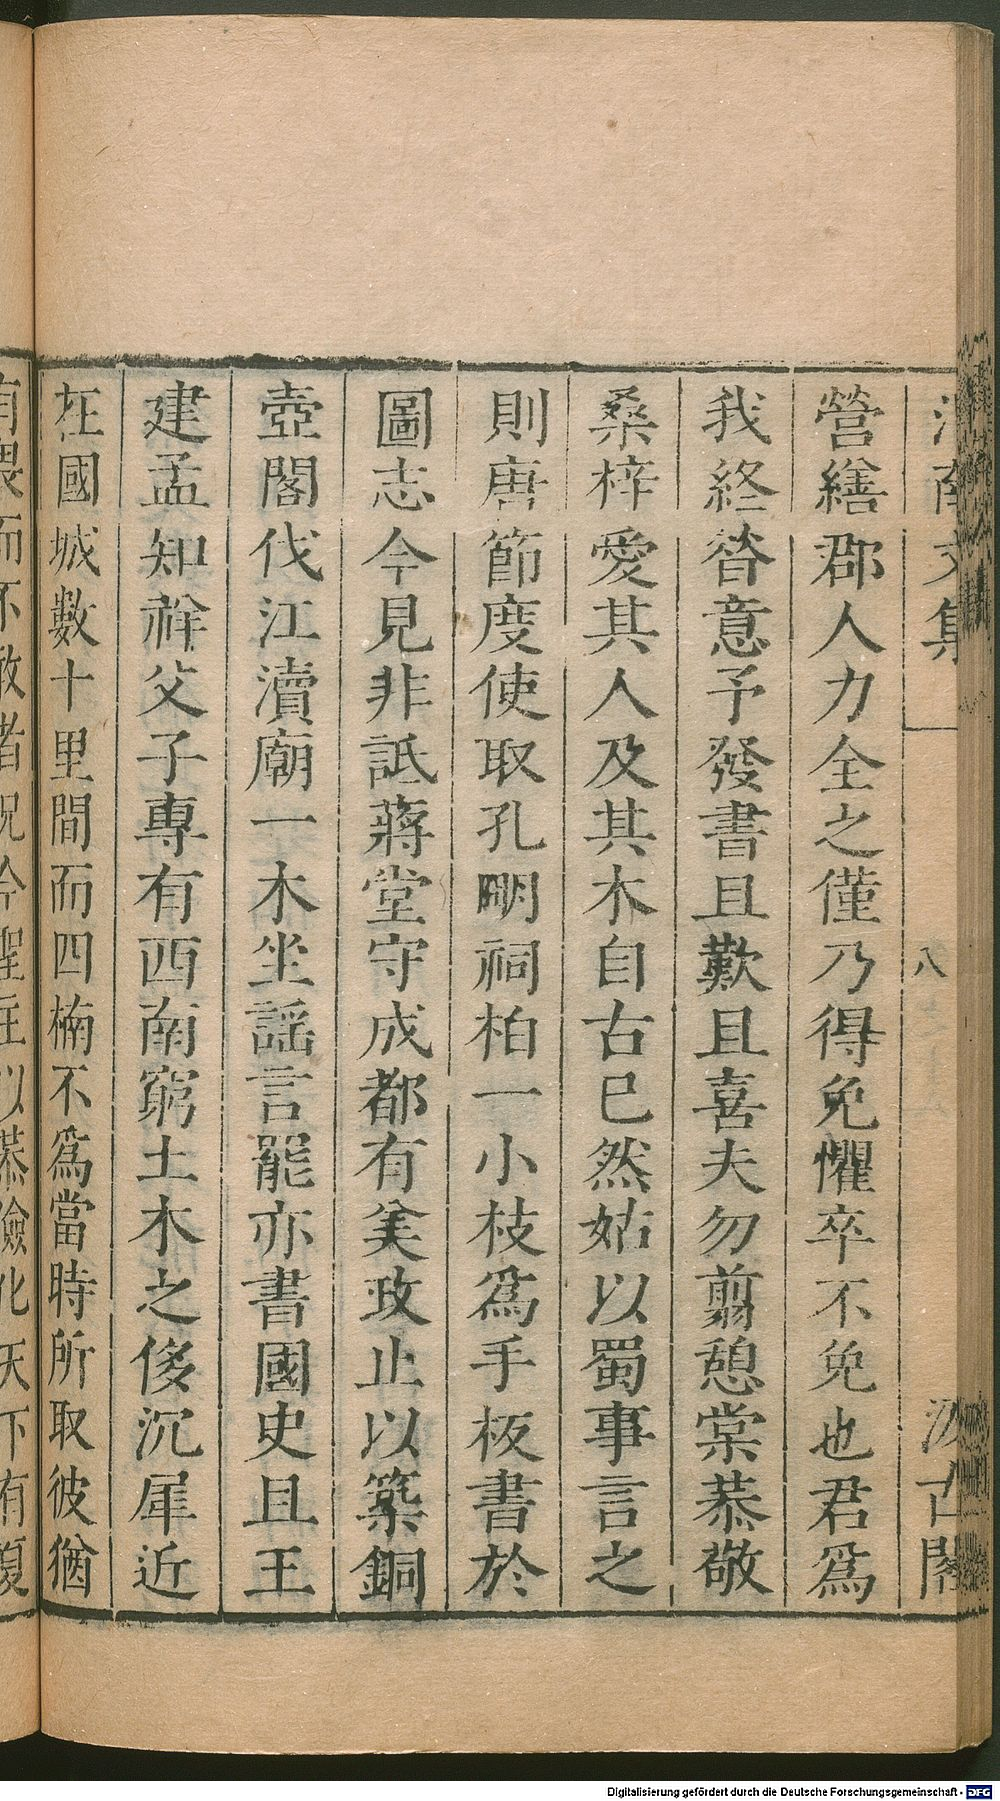 文集
八
古閣
營繕郡人力全之僅乃得免懼卒不免也君爲
我終昝意予發書且歎且喜夫勿翦憩棠恭敬
桑梓愛其人及其木自古已然姑以蜀事言之
則唐節度使取孔明祠柏一小枝爲手板書於
圖志今見非詆蔣堂守成都有美政止以築銅
壺閣伐江瀆廟一木坐謡言罷亦書國史且王
建孟知祥父子專有西南窮土木之侈沉犀近
在國城數十里間而四楠不爲當時所取彼猶
有畏而不敢者況今聖主以恭儉化天下有復
Digitalisierung gefördert durch die Deutsche Forschungsgemeinschaft - DFG